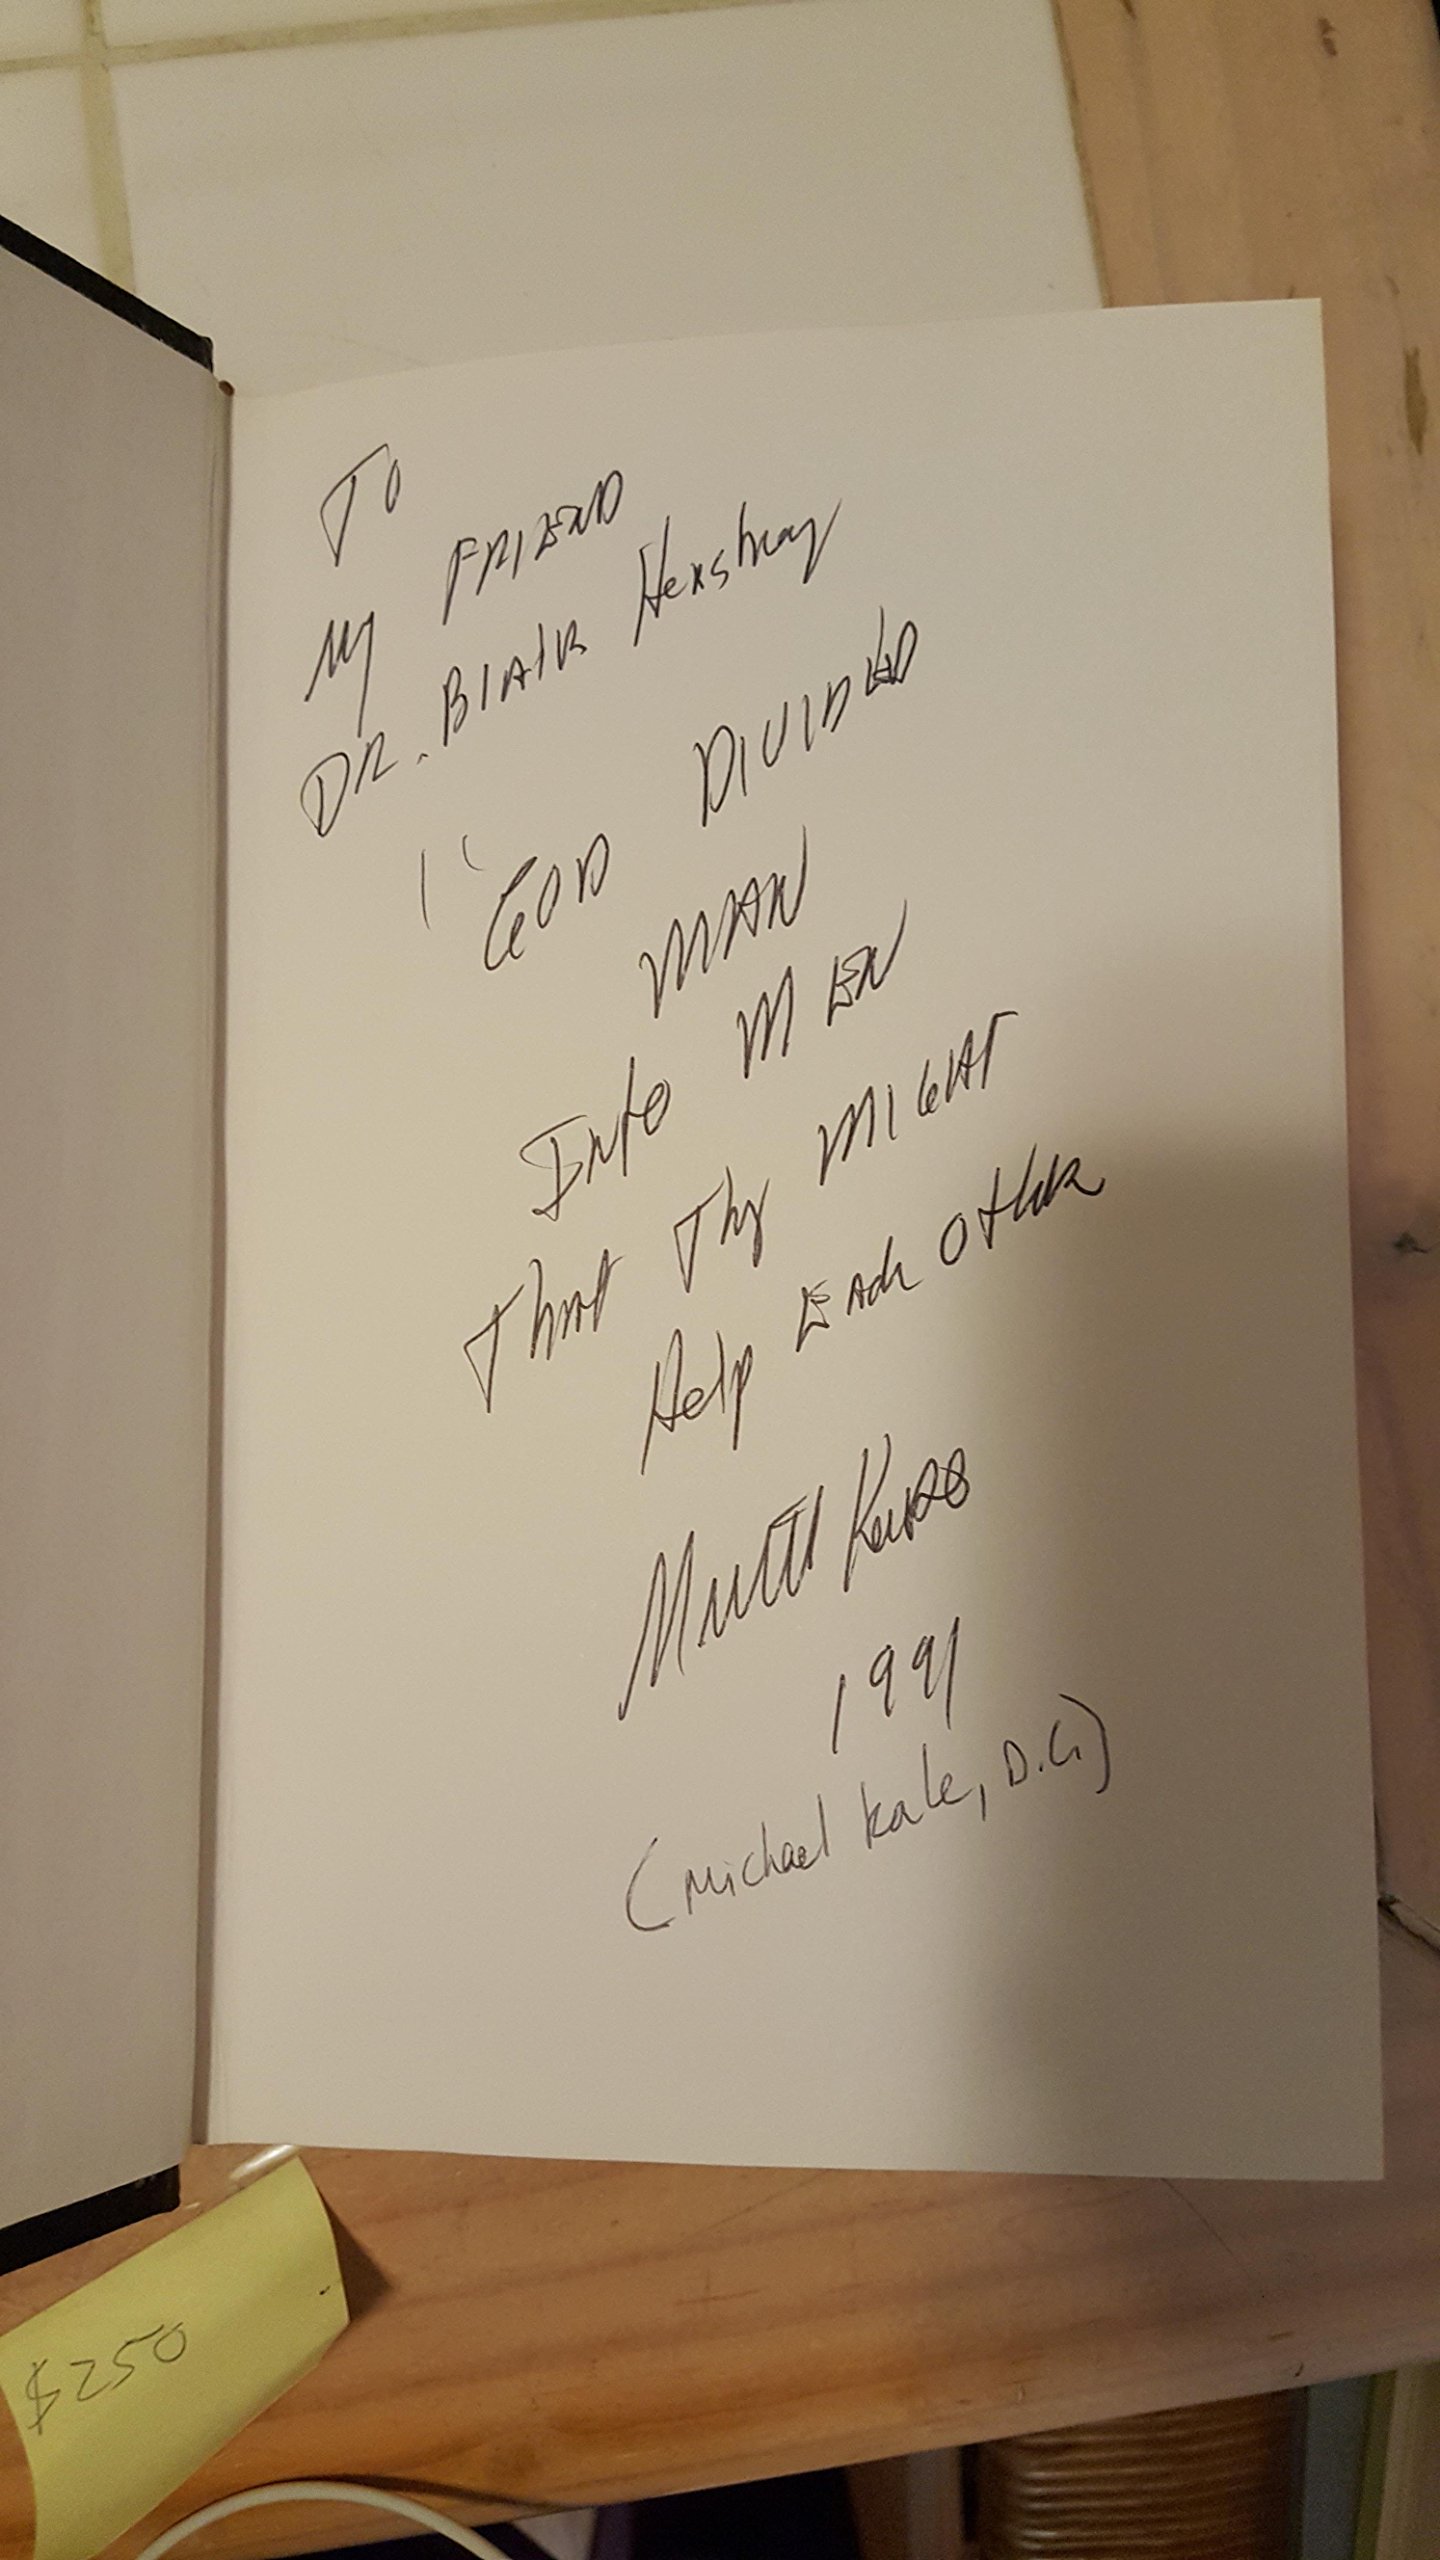 To
My FRIEND
DR. BlAIR
"GOD DIVIDED
MAN
Into MEN
That Thy MIGHT
Help EACh OtheR
1991
(Michael Kale, D.C.)
$250